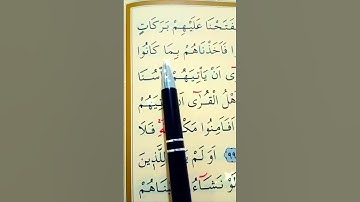 لَفَتَحْنَا عَلَيْهِمْ بَرَكَاتٍ
فَاَخَذْنَاهُمْ بِمَا كَانُوا
اَنْ يَأْتِيَهُمْ
اَهْلُ الْقُرٰٓى
اَفَاَمِنُوا فَلَا
﴿٩٩﴾ اَوَلَمْ لِلَّذِينَ
لَوْ نَشَٓاءُ